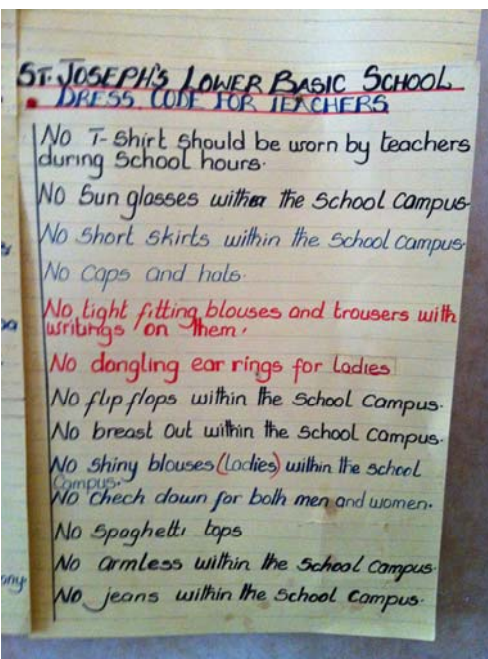 ST. JOSEPH'S LOWER BASIC SCHOOL
DRESS CODE FOR TEACHERS
No T-Shirt should be worn by teachers
during School hours.
No Sun glasses within the School campus.
No short skirts within the School campus.
No caps and hats.
No tight fitting blouses and trousers with
writings on them.
No dangling ear rings for Ladies
No flip flops within the School Campus.
No breast out within the School Campus.
No Shiny blouses (Ladies) within the School
Campus.
No chech down for both men and women.
No Spaghetti tops
No armless within the School Campus.
No jeans within the School Campus.